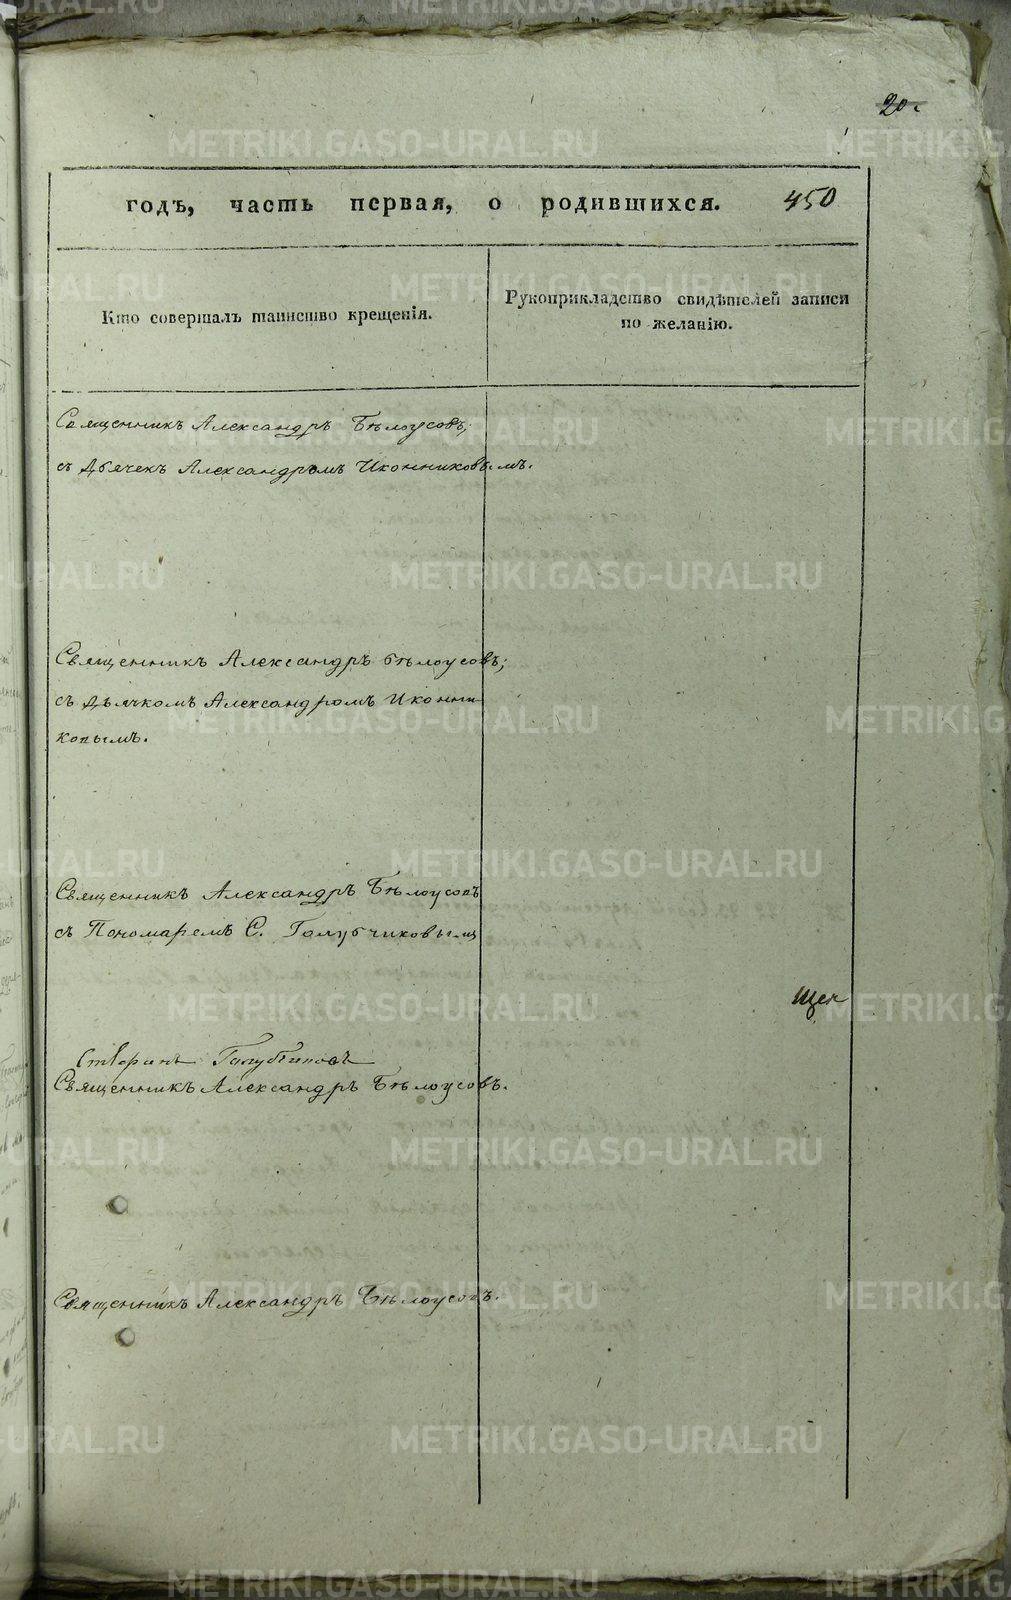 20.
годъ, часть первая, о родившихся. 450
Кто совершалъ таинство крещенія.
Рукоприкладство свидѣтелей записи
по желанію.
Священникъ Александръ Бѣлоусовъ;
съ Дьячекъ Александромъ Иконниковымъ.
Священникъ Александръ Бѣлоусовъ;
съ Дьячкомъ Александромъ Иконни-
ковымъ.
Священникъ Александръ Бѣлоусовъ
съ Пономаремъ С. Голубчиковымъ
Щек
Стефанъ Голубчиковъ
Священникъ Александръ Бѣлоусовъ.
Священникъ Александръ Бѣлоусовъ.
METRIKI.GASO-URAL.RU